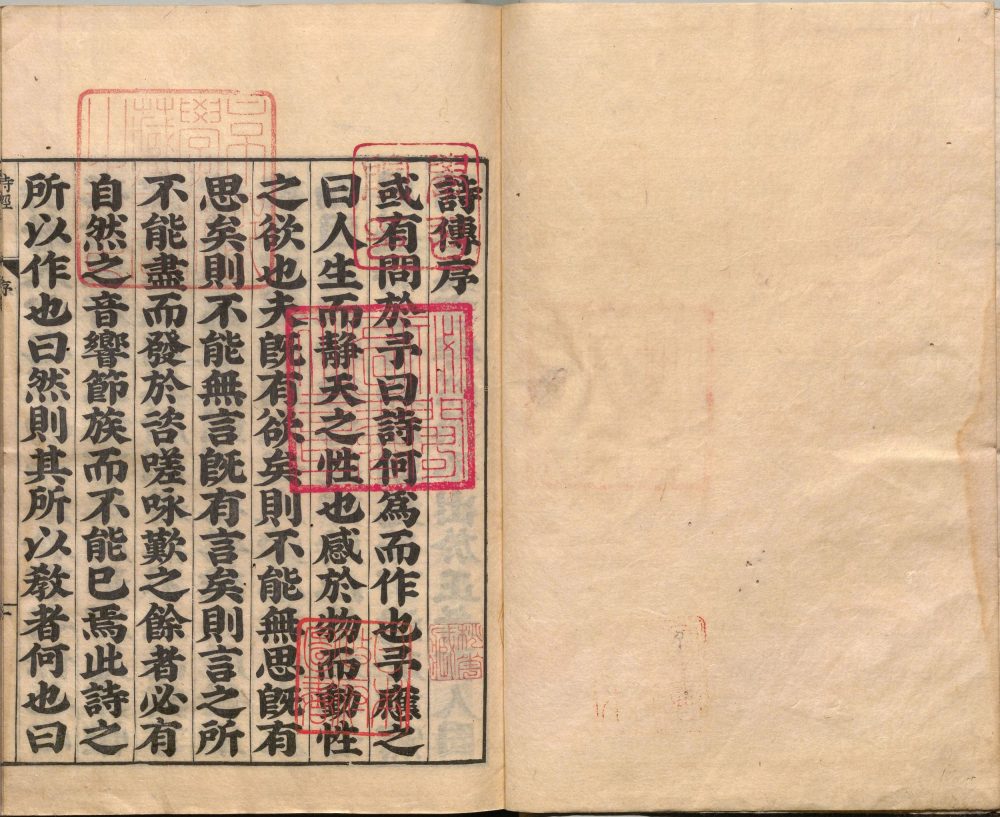 詩傳序
或有問於予曰詩何爲而作也予應之
曰人生而静天之性也感於物而動性
之欲也夫旣有欲矣則不能無思旣有
思矣則不能無言旣有言矣則言之所
不能盡而發於咨嗟咏歎之餘者必有
自然之音響節族而不能已焉此詩之
所以作也曰然則其所以敎者何也曰
詩經
序